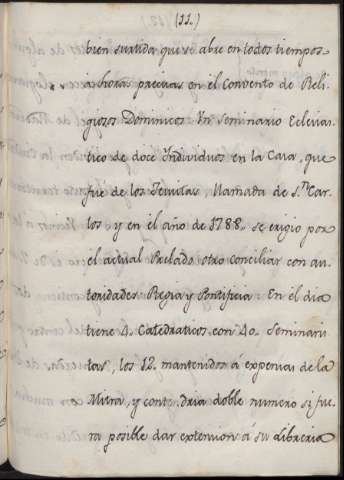 (11.)
bien surtida que se abre en todos tiempos
a horas precisas en el Convento de Reli-
giosos Dominicos. Un Seminario Eclesias-
tico de doce Individuos en la Casa, que
fue de los Jesuitas, llamada de S.n Car-
los, y en el año de 1788. se erigio por
el actual Prelado otro conciliar con au-
toridades Regia y Pontificia. En el dia
tiene 4. Catedraticos con 40. Seminaris-
tas, los 12. mantenidos á expensas de la
Mitra, y contendria doble numero si fue-
ra posible dar extension á su libreria